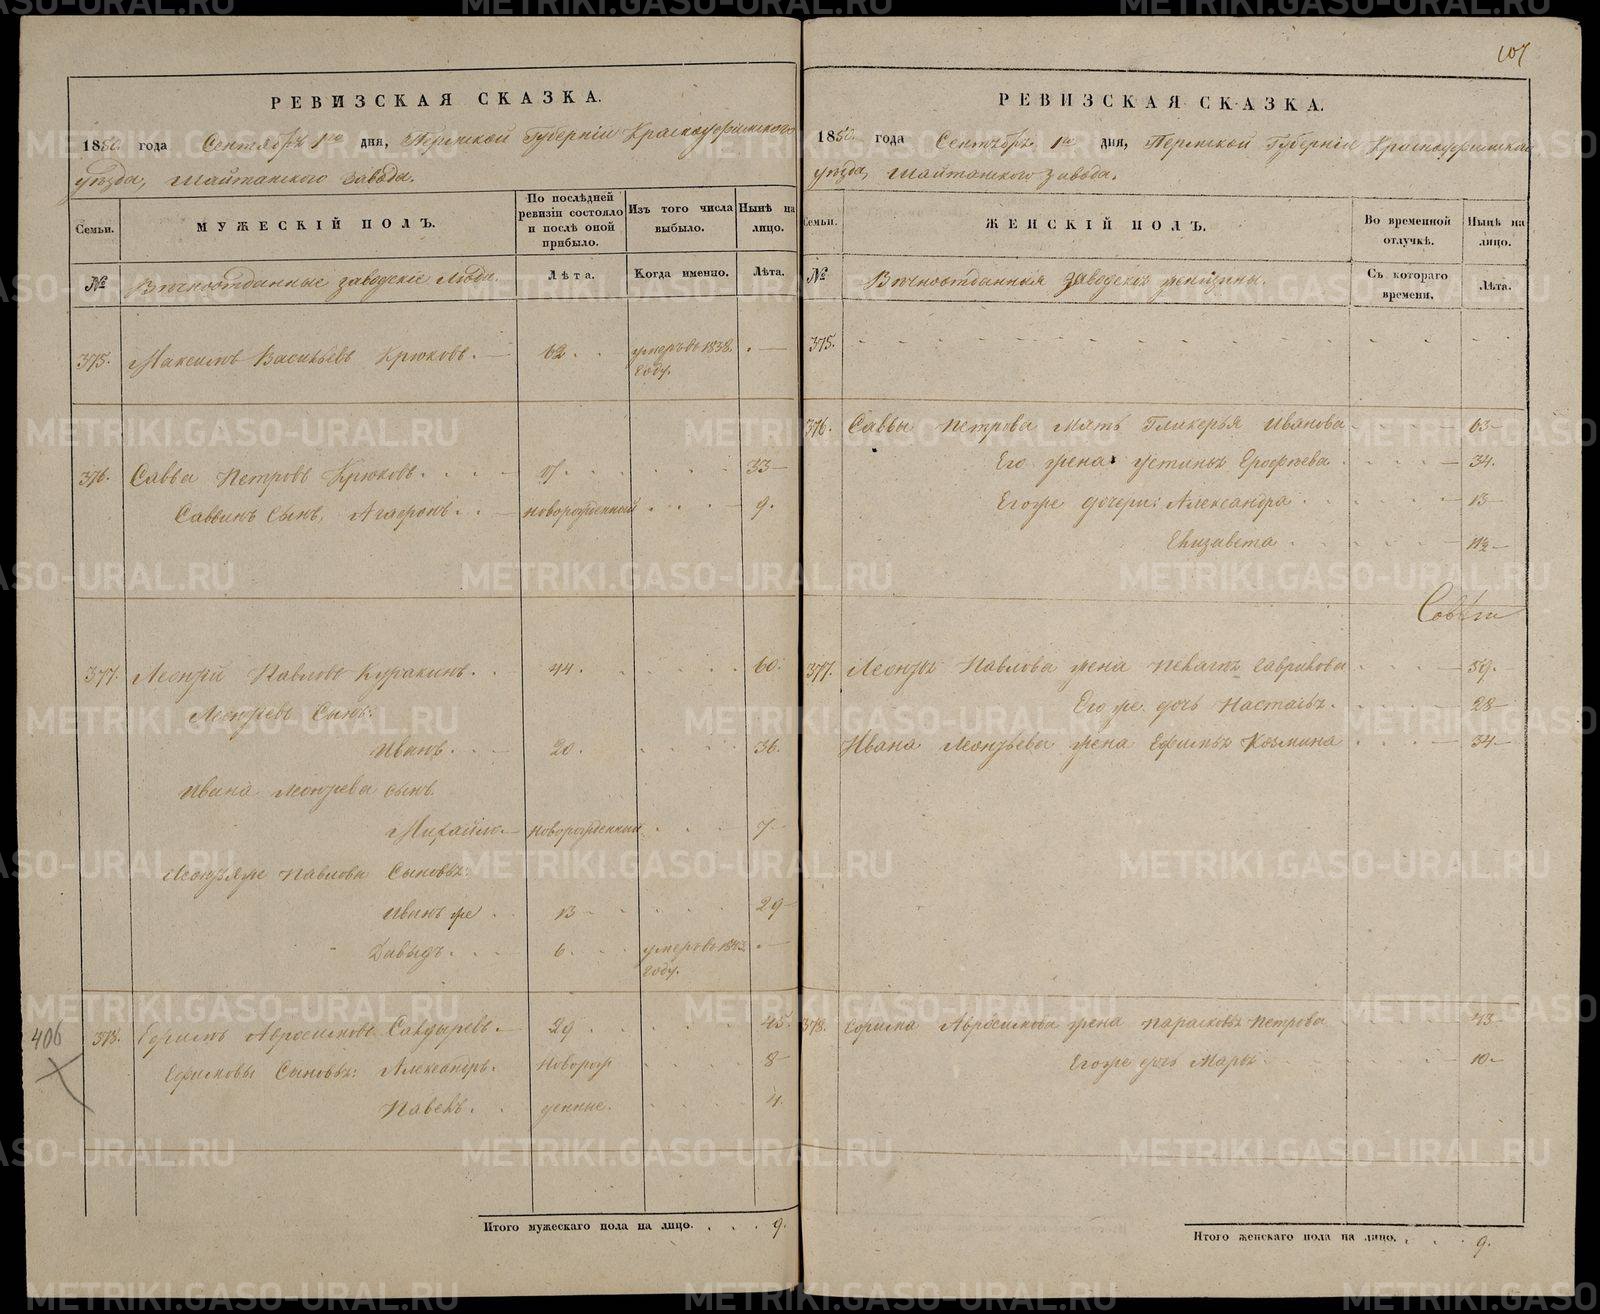 107
РЕВИЗСКАЯ СКАЗКА.
1850. года Сентября 1го дня, Пермской Губерніи Красноуфимского
уѣзда, Шайтанского завода.
Семьи.
МУЖЕСКІЙ ПОЛЪ.
По послѣдней ревизіи состояло и послѣ оной прибыло.
Изъ того числа выбыло.
Нынѣ на лицо.
№
Вѣчноотданные заводскіе люди.
Лѣта.
Когда именно.
Лѣта.
375. Максимъ Васильевъ Крюковъ. 62. умеръ въ 1838. году.
376. Савва Петровъ Крюковъ. 17. 33
Саввинъ сынъ, Агафонъ. новорожденный 9.
377. Леонтій Павловъ Куракинъ. 44. 60.
Леонтьевъ Сынъ:
Иванъ. 20. 36.
Ивана Леонтьева сынъ.
Михайло. новорожденный 7
Леонтья же Павлова Сыновья:
Иванъ же 13 29
Давыдъ. 6. умеръ въ 1843. году.
406
378. Ефимъ Авросимовъ 29. 45.
Ефимовы Сыновья: Александръ. новорож 8
Павелъ. денные. 4.
Итого мужескаго пола на лицо. 9.
РЕВИЗСКАЯ СКАЗКА.
1850. года Сентября 1го дня, Пермской Губерніи Красноуфимскаго
уѣзда, Шайтанского завода.
Семьи.
ЖЕНСКІЙ ПОЛЪ.
Во временной отлучкѣ.
Нынѣ на лицо.
№
Вѣчноотданныя заводскія женщины.
Съ котораго времени.
Лѣта.
375.
376. Саввы Петрова Мать Гликерья Иванова 63
Его жена Устинья Ерофѣева 34.
Его же дочери: Александра 13
Елизавета 1 1/2
377. Леонтья Павлова жена Пелагея Гаврилова 59.
Его же дочь Настасья. 28
Ивана Леонтьева жена Ефимья Козмина 34
378. Ефима Авросимова жена Парасковья Петрова 43
Его же дочь Марья 10
Итого женскаго пола на лицо. 9.
METRIKI.GASO-URAL.RU